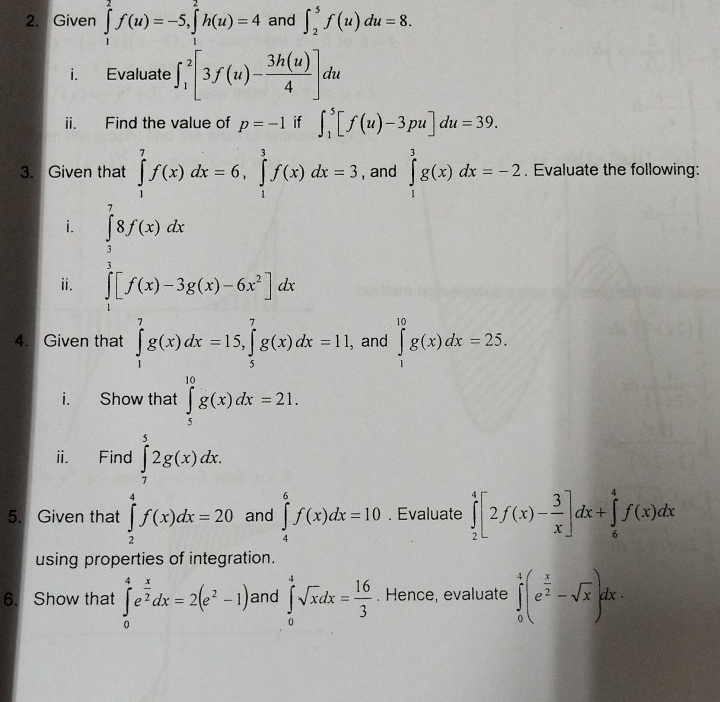 2. Given ∫₁² f(u) = -5, ∫₁² h(u) = 4 and ∫₂⁵ f(u) du = 8.
i. Evaluate ∫₁² [3f(u) - 3h(u)/4] du
ii. Find the value of p = -1 if ∫₁⁵ [f(u) - 3pu] du = 39.
3. Given that ∫₁⁷ f(x) dx = 6, ∫₁³ f(x) dx = 3, and ∫₁³ g(x) dx = -2. Evaluate the following:
i. ∫₃⁷ 8f(x) dx
ii. ∫₁³ [f(x) - 3g(x) - 6x²] dx
4. Given that ∫₁⁷ g(x) dx = 15, ∫₅⁷ g(x) dx = 11, and ∫₁¹⁰ g(x) dx = 25.
i. Show that ∫₅¹⁰ g(x) dx = 21.
ii. Find ∫₇⁵ 2g(x) dx.
5. Given that ∫₂⁴ f(x)dx = 20 and ∫₄⁶ f(x)dx = 10. Evaluate ∫₂⁴ [2f(x) - 3/x] dx + ∫₆⁴ f(x)dx
using properties of integration.
6. Show that ∫₀⁴ e^(x/2) dx = 2(e² - 1) and ∫₀⁴ √x dx = 16/3. Hence, evaluate ∫₀⁴ (e^(x/2) - √x) dx.